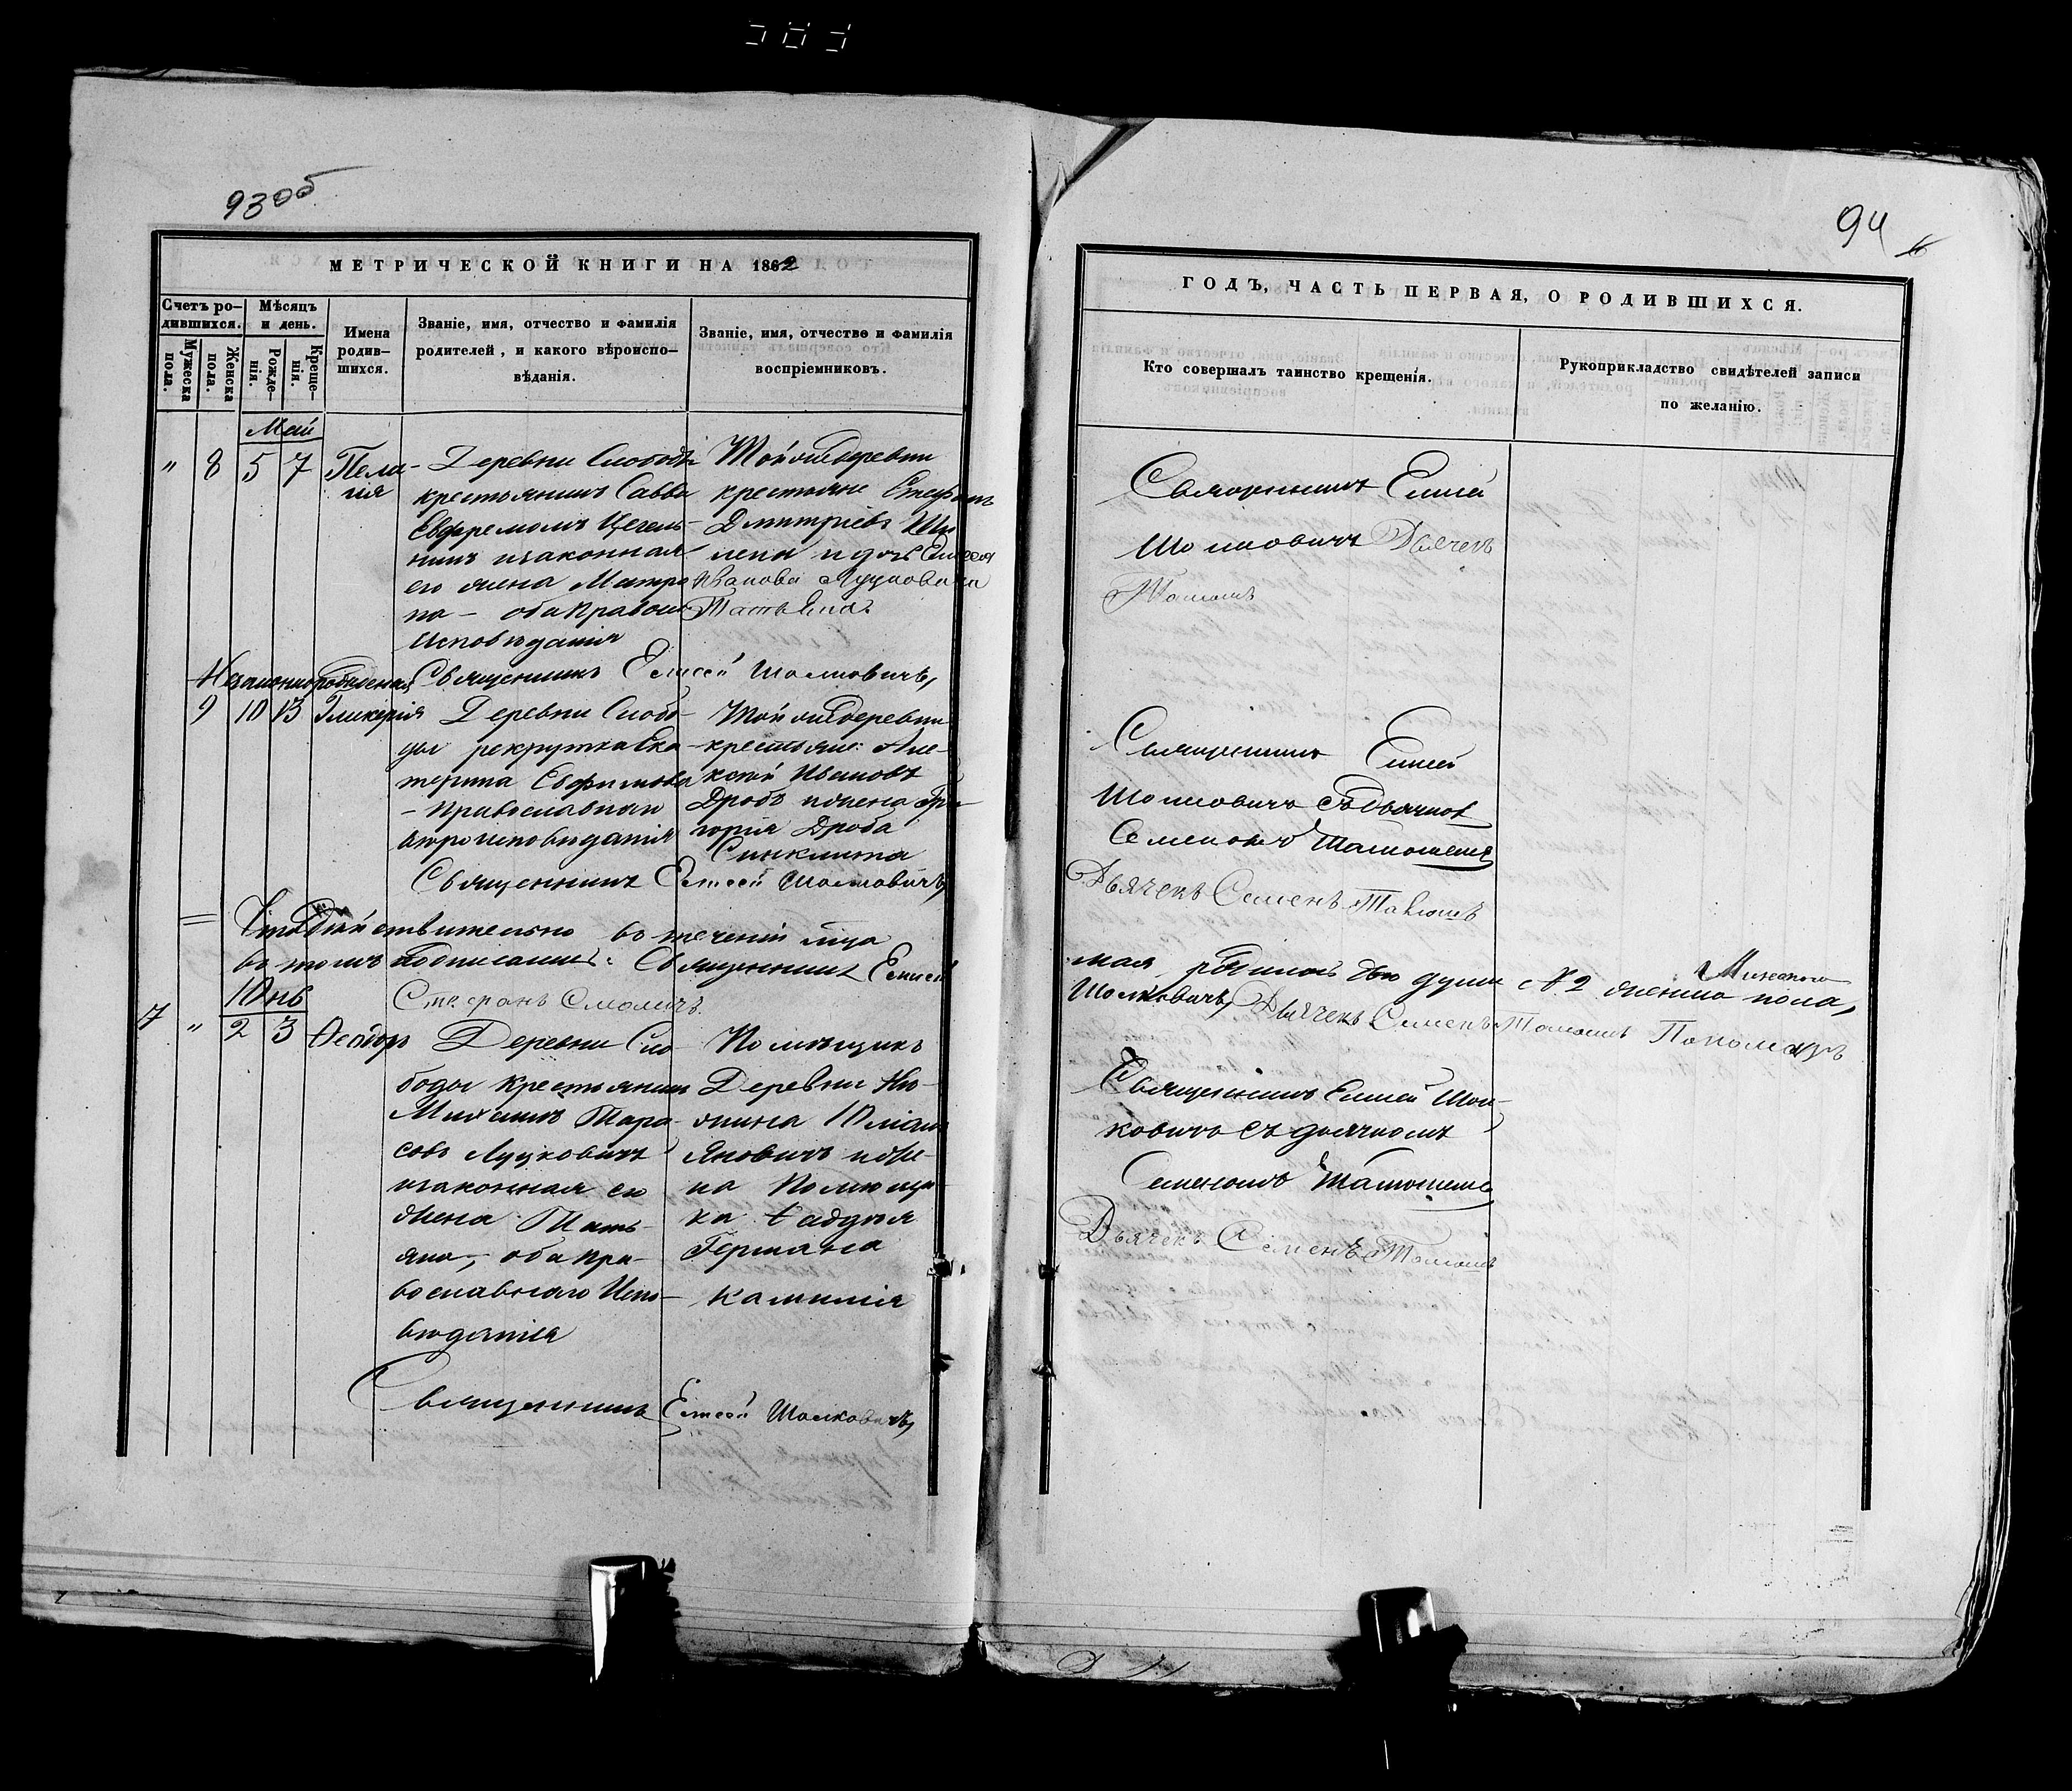 93об
МЕТРИЧЕСКОЙ КНИГИ НА 1862
Счетъ ро-
дившихся.
Мужеска пола.
Женска пола.
Мѣсяцъ
и день.
Рожде-
нія.
Креще-
нія.
Имена
родив-
шихся.
Званіе, имя, отчество и фамилія
родителей, и какого вѣроиспо-
вѣданія.
Званіе, имя, отчество и фамилія
воспріемниковъ.
Май
" 8 5 7
Пела-
гія
Деревни Слободы
крестьянинъ Савва
Евфремовъ
и законная
его жена Матро
на - оба Правосл
Исповѣданія
Той же деревни
крестьяне Стефанъ
Дмитріевъ
и дочь Елисея
Иванова Луцковича
Татьяна
Священникъ Елисей Шолковичъ,
Незаконнорожденная
9 10 13 Гликерія
Деревни Слобо-
ды рекрутка Ека-
терина Евфимова
- Православнаго
вѣроисповѣданія
Той же деревни
крестьяне: Але-
ксѣй Ивановъ
Дробъ и жена Гри-
горія Дроба
Синклита
Священникъ Елисей Шолковичъ,
Что дѣйствительно въ теченіи мца
въ томъ подписались: Священникъ Елисей
Стефанъ Смоличъ.
Юнь
7 " 2 3 Ѳеодоръ
Деревни Сло
боды крестьянинъ
Михаилъ Тара-
совъ Луцковичъ
и законная его
жена Тать-
яна, оба пра-
вославнаго Испо-
вѣданія
Помѣщикъ
Деревни
Юліанъ
Яновичъ и же-
на помѣщи-
ка Фаддѣя
Германа
Камилія
Священникъ Елисей Шолковичъ,
94
ГОДЪ, ЧАСТЬ ПЕРВАЯ, О РОДИВШИХСЯ.
Кто совершалъ таинство крещенія.
Рукоприкладство свидѣтелей записи
по желанію.
Священникъ Елисей
Шолковичъ Дьячекъ
Священникъ Елисей
Шолковичъ съ дьячкомъ
Семеномъ
Дьячекъ Семенъ
мая родилось двѣ души № 2 женска пола,
Шолковичъ, Дьячекъ Семенъ Пономарь
Священникъ Елисей Шол-
ковичъ съ дьячкомъ
Семеномъ
Дьячекъ Семенъ